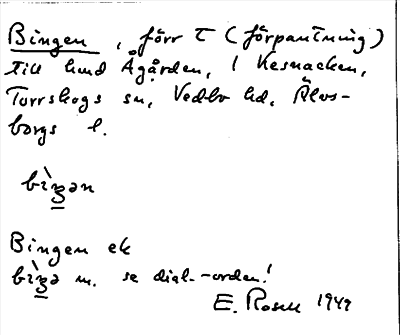 Bingen, förr T (förpantning)
till hmd Ågården, 1 Kesnacken,
Torrskogs sn, Vedbo hd, Älvs-
borgs l.
bìŋən
Bingen ek
bìŋə m. se dial.-orden!
E. Rosell 1942